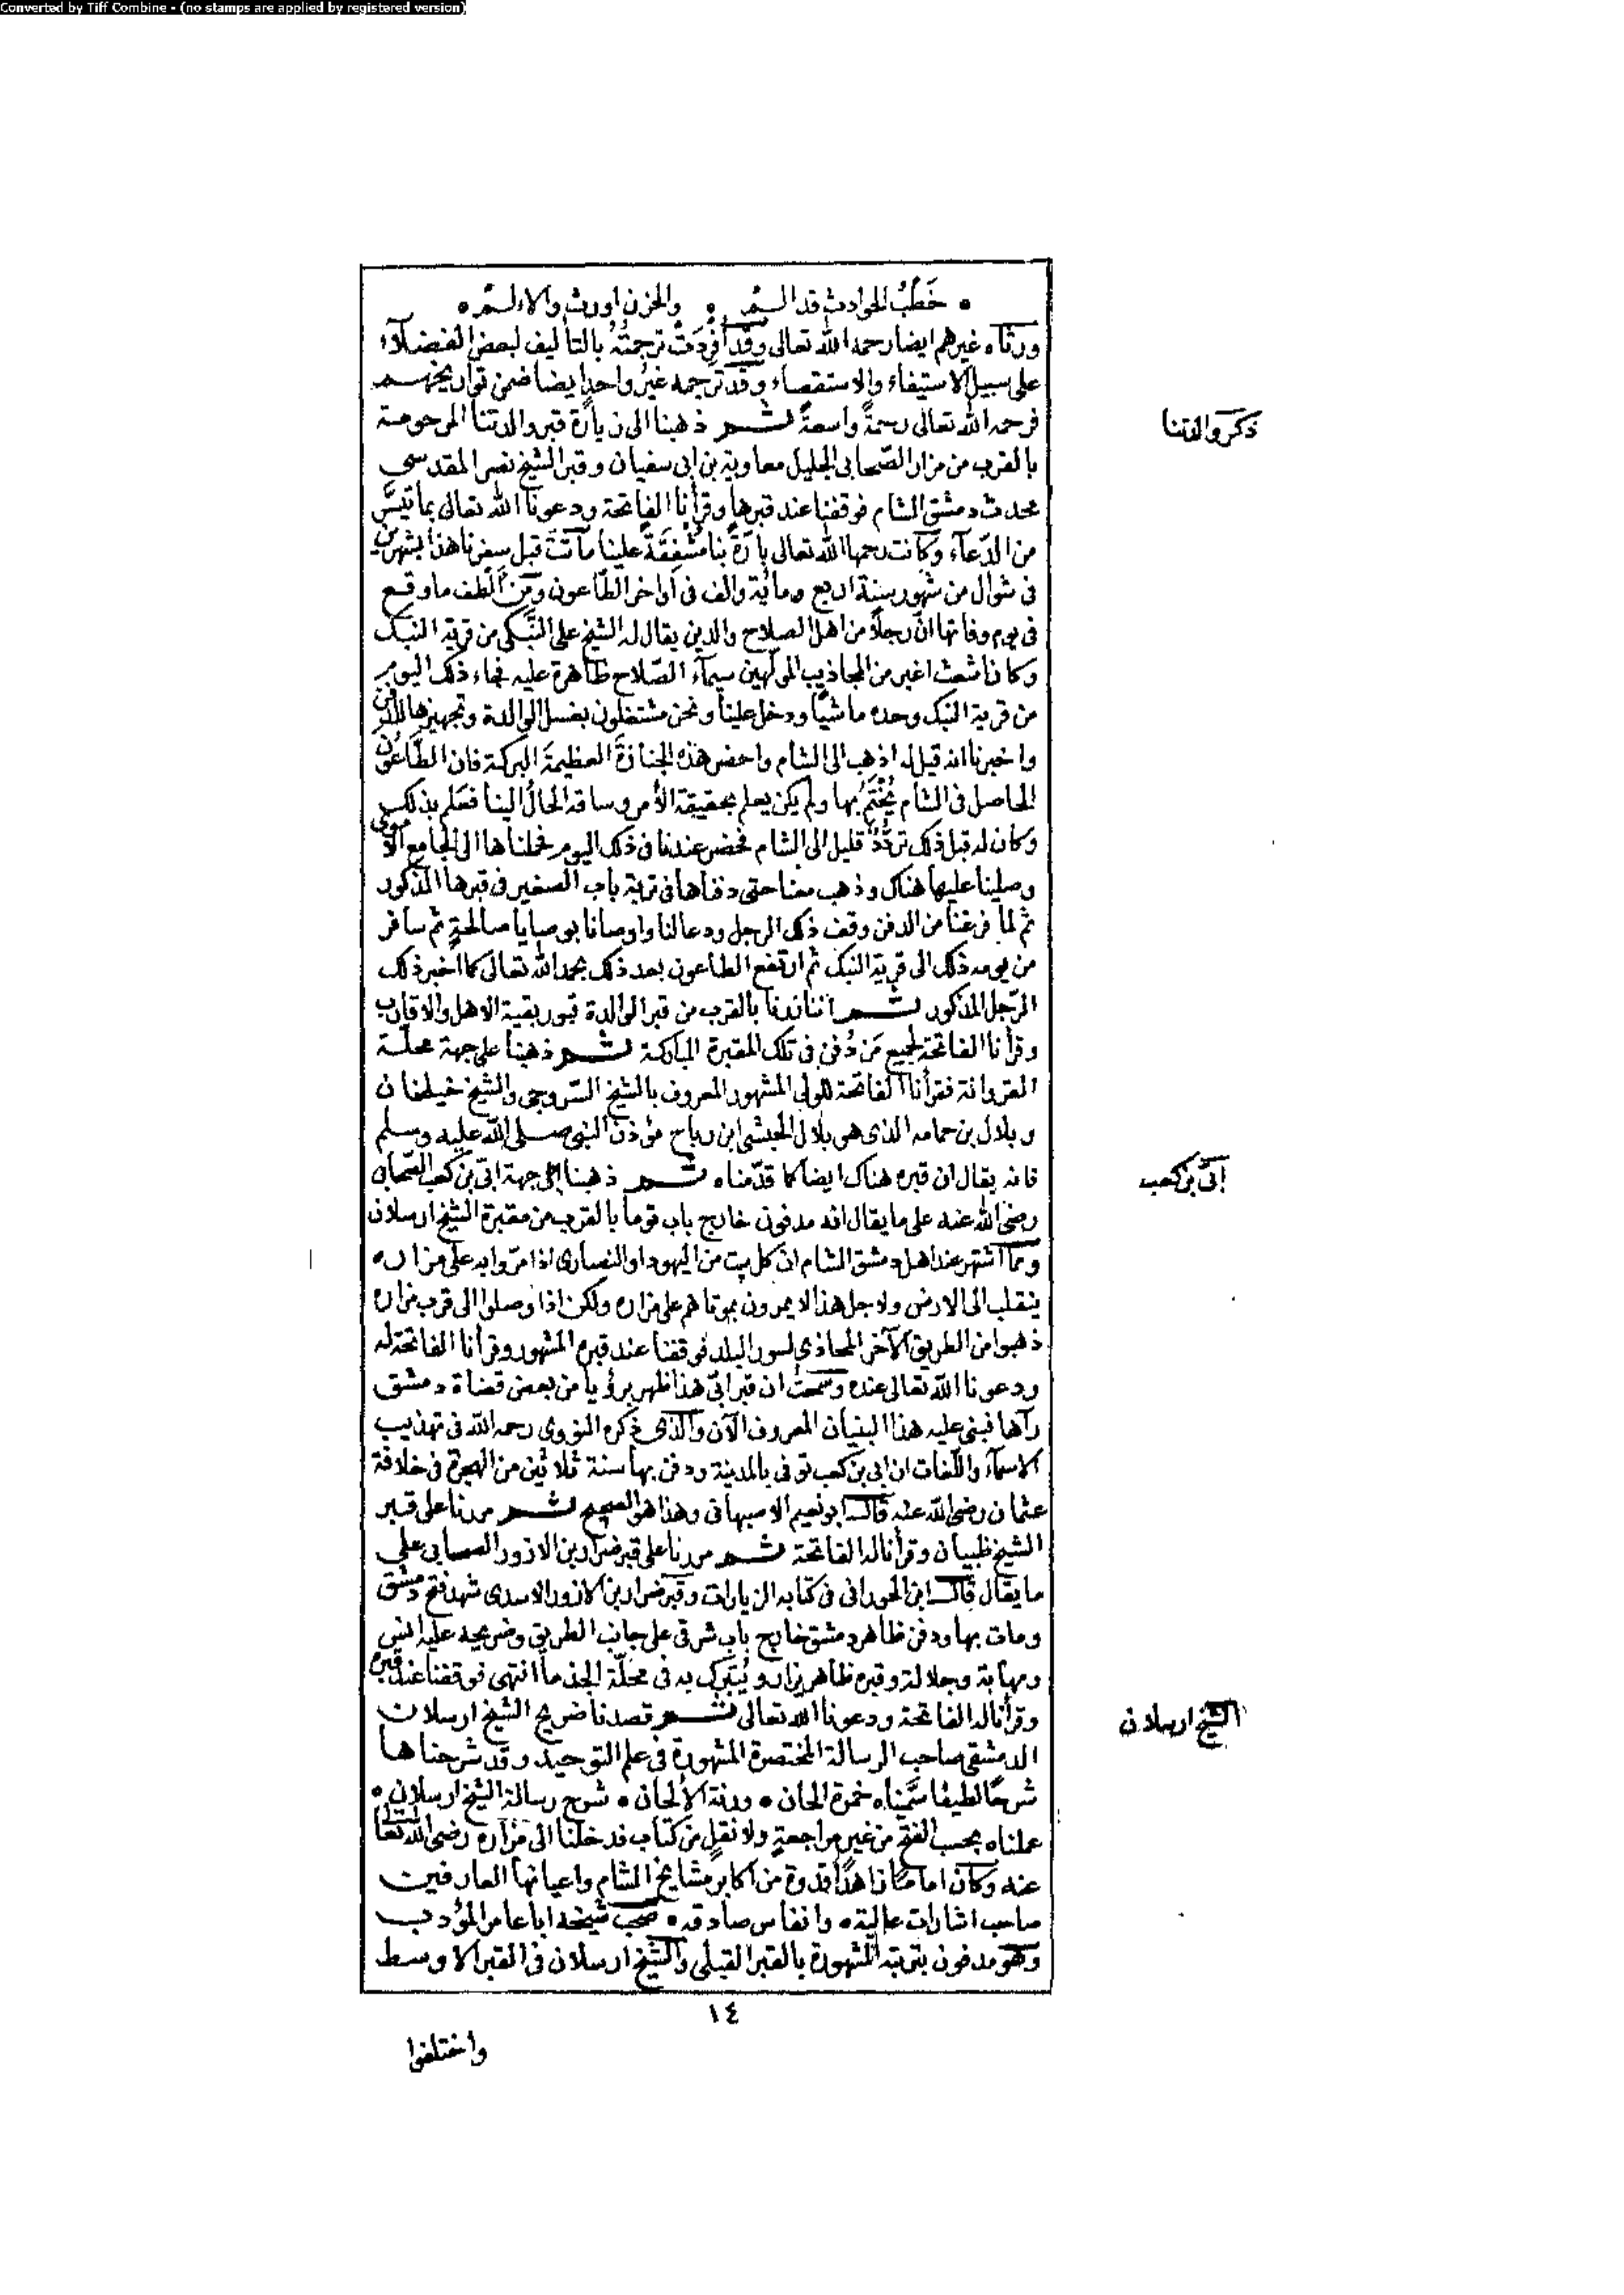 Converted by Tiff Combine - (no stamps are applied by registered version)
• خَطْبُ الحوادث قد الـمّ • والحزن اورث والالـمْ •
ورثاه غيرهم ايضا رحمه الله تعالى وقد أُفْرِدَتْ ترجمتُهُ بالتأليف لبعض الفضلآء
على سبيل الاستيفاء والاستقصاء وقد ترجمه غيرُ واحدٍ ايضا ضمن تواريخهم
فرحمه الله تعالى رحمةً واسعةً ثم ذهبنا الى زيارة قبر والدتنا المرحومة
ذكر والدتنا
بالقرب من مزار الصّحابى الجليل معاوية بن ابى سفيان وقبر الشيخ نصر المقدسي
محدث دمشق الشام فوقفنا عند قبرها وقرأنا الفاتحة ودعونا الله تعالى بما تيسَّر
من الدّعآء وكانت رحمها الله تعالى بارّةً بنا مُشْفِقَةً علينا ماتت قبل سفرنا هذا بشهرين
فى شوال من شهور سنة اربع ومائة والف فى اواخر الطّاعون ومن ألطف ما وقع
فى يوم وفاتها انّ رجلاً من اهل الصلاح والدين يقال له الشيخ على النَّبكى من قرية النبك
وكان اشعث اغبر من المجاذيب المولّهين سيمآء الصّلاح ظاهرة عليه فجاء ذلك اليوم
من قرية النبك وحده ماشيًا ودخل علينا ونحن مشتغلون بغسل الوالدة وتجهيزها للدفن
واخبرنا انه قيل له اذهب الى الشام واحضر هذه الجنازة العظيمة البركة فان الطَّاعُونَ
الحاصل فى الشام يُخْتَمُ بها ولم يكن يعلم بحقيقة الأمر وساقه الحالُ الينا فعَلم بذلك
وكان له قبل ذلك تردُّدٌ قليل الى الشام فحضر عندنا فى ذلك اليوم فحملناها الى الجامع الأموي
وصلينا عليها هناك وذهب معنا حتى دفناها فى تربة باب الصغير فى قبرها المذكور
ثم لما فرغنا من الدفن وقف ذلك الرجل ودعا لنا واوصانا بوصايا صالحةٍ ثم سافر
من يومه ذلك الى قرية النبك ثم ارتفع الطاعون بعد ذلك بحمد الله تعالى كما أخبر ذلك
الرّجل المذكور ثم اننا زرنا بالقرب من قبر الوالدة قبور بقية الاهل والاقارب
وقرأنا الفاتحة لجميع مَن دُفن فى تلك المقبرة المباركة ثم ذهبنا على جهة محلّة
القروانة فقرأنا الفاتحة للولى المشهور المعروف بالشيخ السّروجى والشيخ خيلخان
وبلال بن حمامه الذى هو بلال الحبشى ابن رباح مؤذن النبى صلى الله عليه وسلم
فانه يقال ان قبره هناك ايضا كما قدّمناه ثم ذهبنا الى جهة ابىّ بن كعب الصّحابى
ابىّ بن كعب
رضى الله عنه على ما يقال انه مدفون خارج باب توما بالقرب من مقبرة الشيخ ارسلان
ومما اشتهر عند اهل دمشق الشام انّ كل ميت من اليهود او النصارى اذا مرّوا به على مزاره
ينقلب الى الارض ولاجل هذا لا يمرون بموتاهم على مزاره ولكن اذا وصلوا الى قرب مزاره
ذهبوا من الطريق الآخر المحاذى لسور البلد فوقفنا عند قبره المشهور وقرأنا الفاتحة له
ودعونا الله تعالى عنده وسمعتُ ان قبر ابىّ هذا ظهر برؤيا من بعض قضاة دمشق
رآها فبنى عليه هذا البنيان المعروف الآن والذى ذكره النووى رحمه الله فى تهذيب
الاسمآء واللّغات ان ابى بن كعب توفى بالمدينة ودفن بها سنة ثلاثين من الهجرة فى خلافة
عثمان رضى الله عنه قال ابو نعيم الاصبهانى وهذا هو الصحيح ثم مررنا على قبر
الشيخ ظبيان وقرأنا له الفاتحة ثم مررنا على قبر ضرار بن الازور الصحابى على
ما يقال قال ابن الحورانى فى كتابه الزيارات وقبر ضرار بن الازور الاسدى شهد فتح دمشق
ومات بها ودفن ظاهر دمشق خارج باب شرقى على جانب الطريق وضريحه عليه انس
ومهابة وجلالة وقبره ظاهر يزار ويُتبرّك به فى محلّة الجذما انتهى فوقفنا عند قبره
وقرأنا له الفاتحة ودعونا الله تعالى ثم قصدنا ضريح الشيخ ارسلان
الشيخ ارسلان
الدمشقى صاحب الرسالة المختصرة المشهورة فى علم التوحيد وقد شرحناها
شرحًا لطيفا سمّيناه خمرة الحان • ورنة الألحان • شرح رسالة الشيخ ارسلان •
عملناه بحسب الفتح من غير مراجعةٍ ولا نقلٍ من كتاب فدخلنا الى مزاره رضى الله تعالى
عنه وكان اماماً زاهدًا قدوة من اكابر مشايخ الشام واعيانها العارفين
صاحب اشارات عالية • وانفاس صادقه • صحب شيخه ابا عامر المؤدب
وهو مدفون بتربته المشهورة بالقبر القبلى والشيخ ارسلان فى القبر الاوسط
١٤
واختلفوا